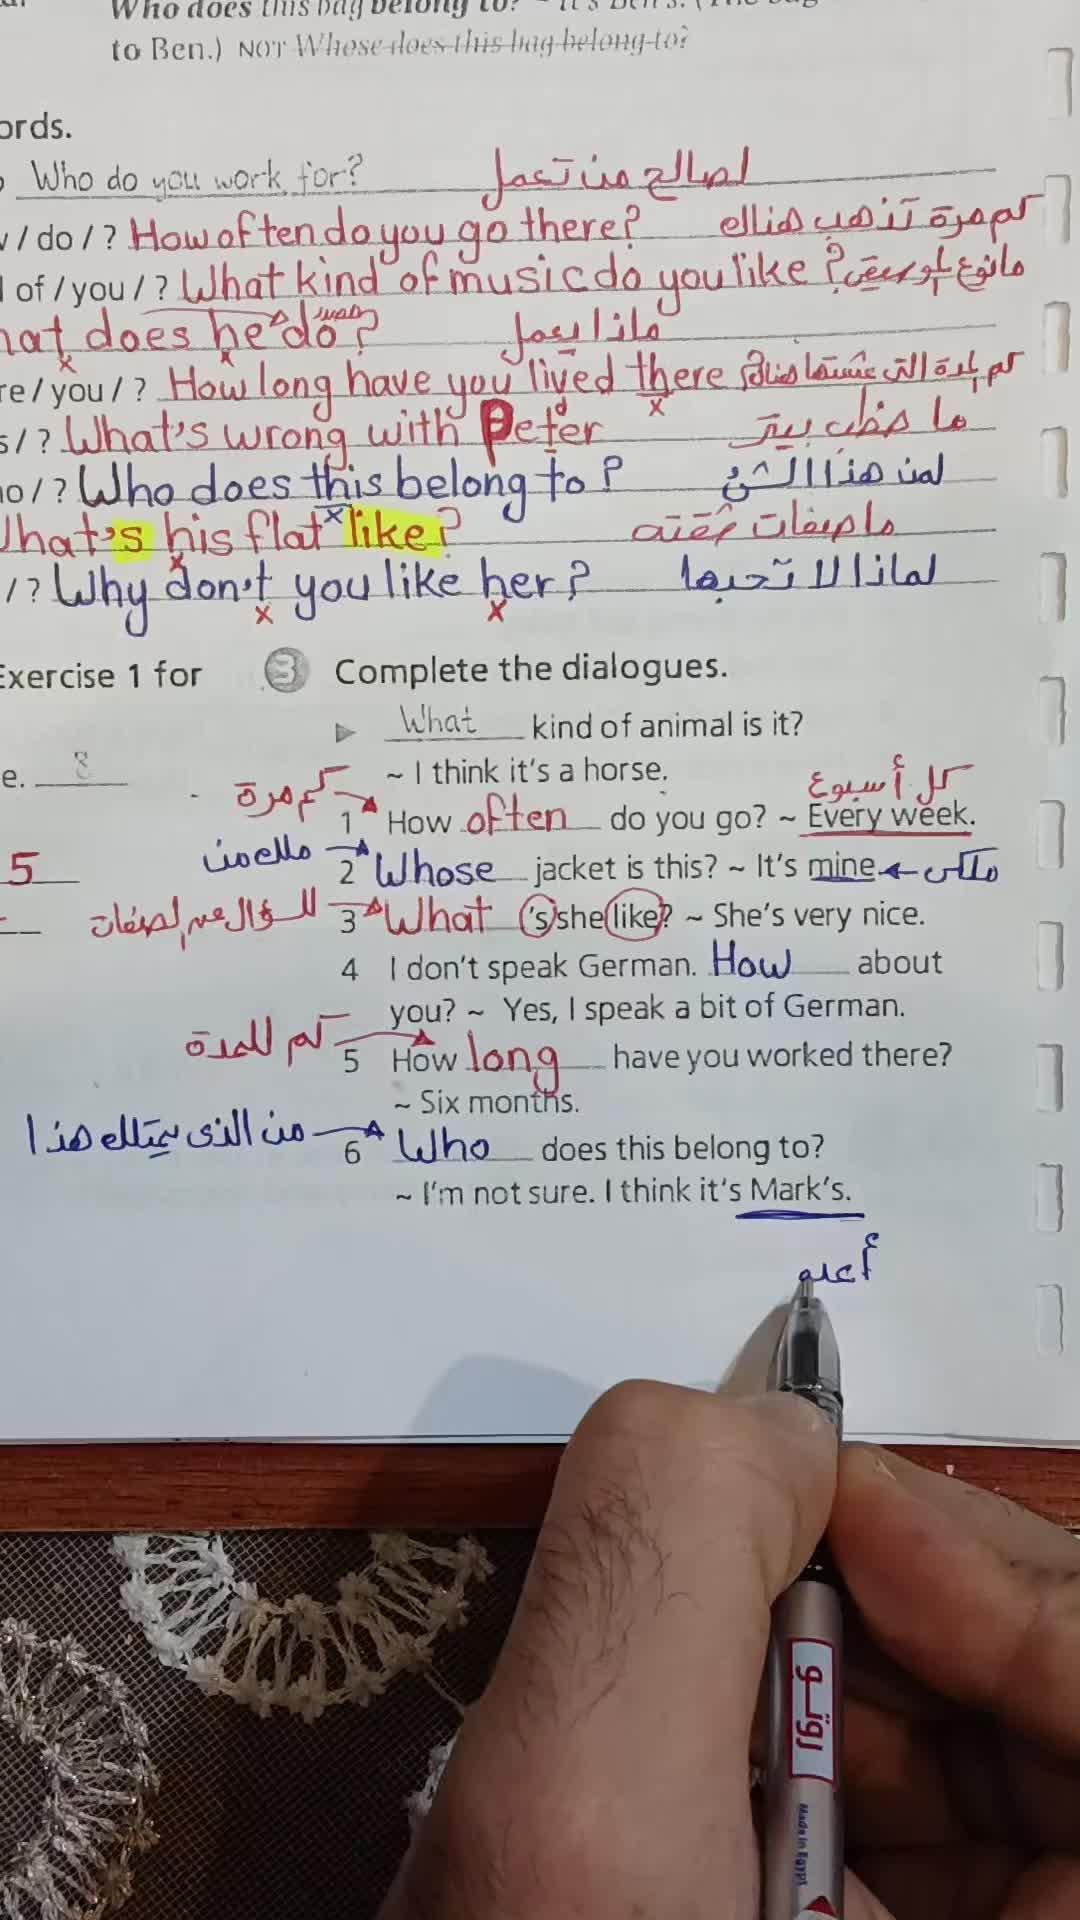 Who does this bag belong to? ~ It's Ben's. (The bag
to Ben.) NOT Whose does this bag belong to?
ords.
Who do you work for? لصالح من تعمل
/ do / ? How often do you go there? كم مرة تذهب هناك
of / you / ? What kind of music do you like ? مانوع
hat does he do ? ماذا يعمل
re / you / ? How long have you lived there كم
s / ? What's wrong with Peter ما خطب بيتر
ho / ? Who does this belong to ? لمن هذا الشئ
What's his flat like ? ما صفات شقته
/ ? Why don't you like her ? لماذا لا تحبها
Exercise 1 for
e. 8
5
3 Complete the dialogues.
What kind of animal is it?
~ I think it's a horse.
كم مرة كل أسبوع
1 How often do you go? ~ Every week.
ملك من 2 Whose jacket is this? ~ It's mine ملكى
للسؤال عن الصفات 3 What 's she like? ~ She's very nice.
4 I don't speak German. How about
you? ~ Yes, I speak a bit of German.
كم للمدة 5 How long have you worked there?
~ Six months.
من الذى يمتلك هذا 6 Who does this belong to?
~ I'm not sure. I think it's Mark's.
روتو
Made in Egypt